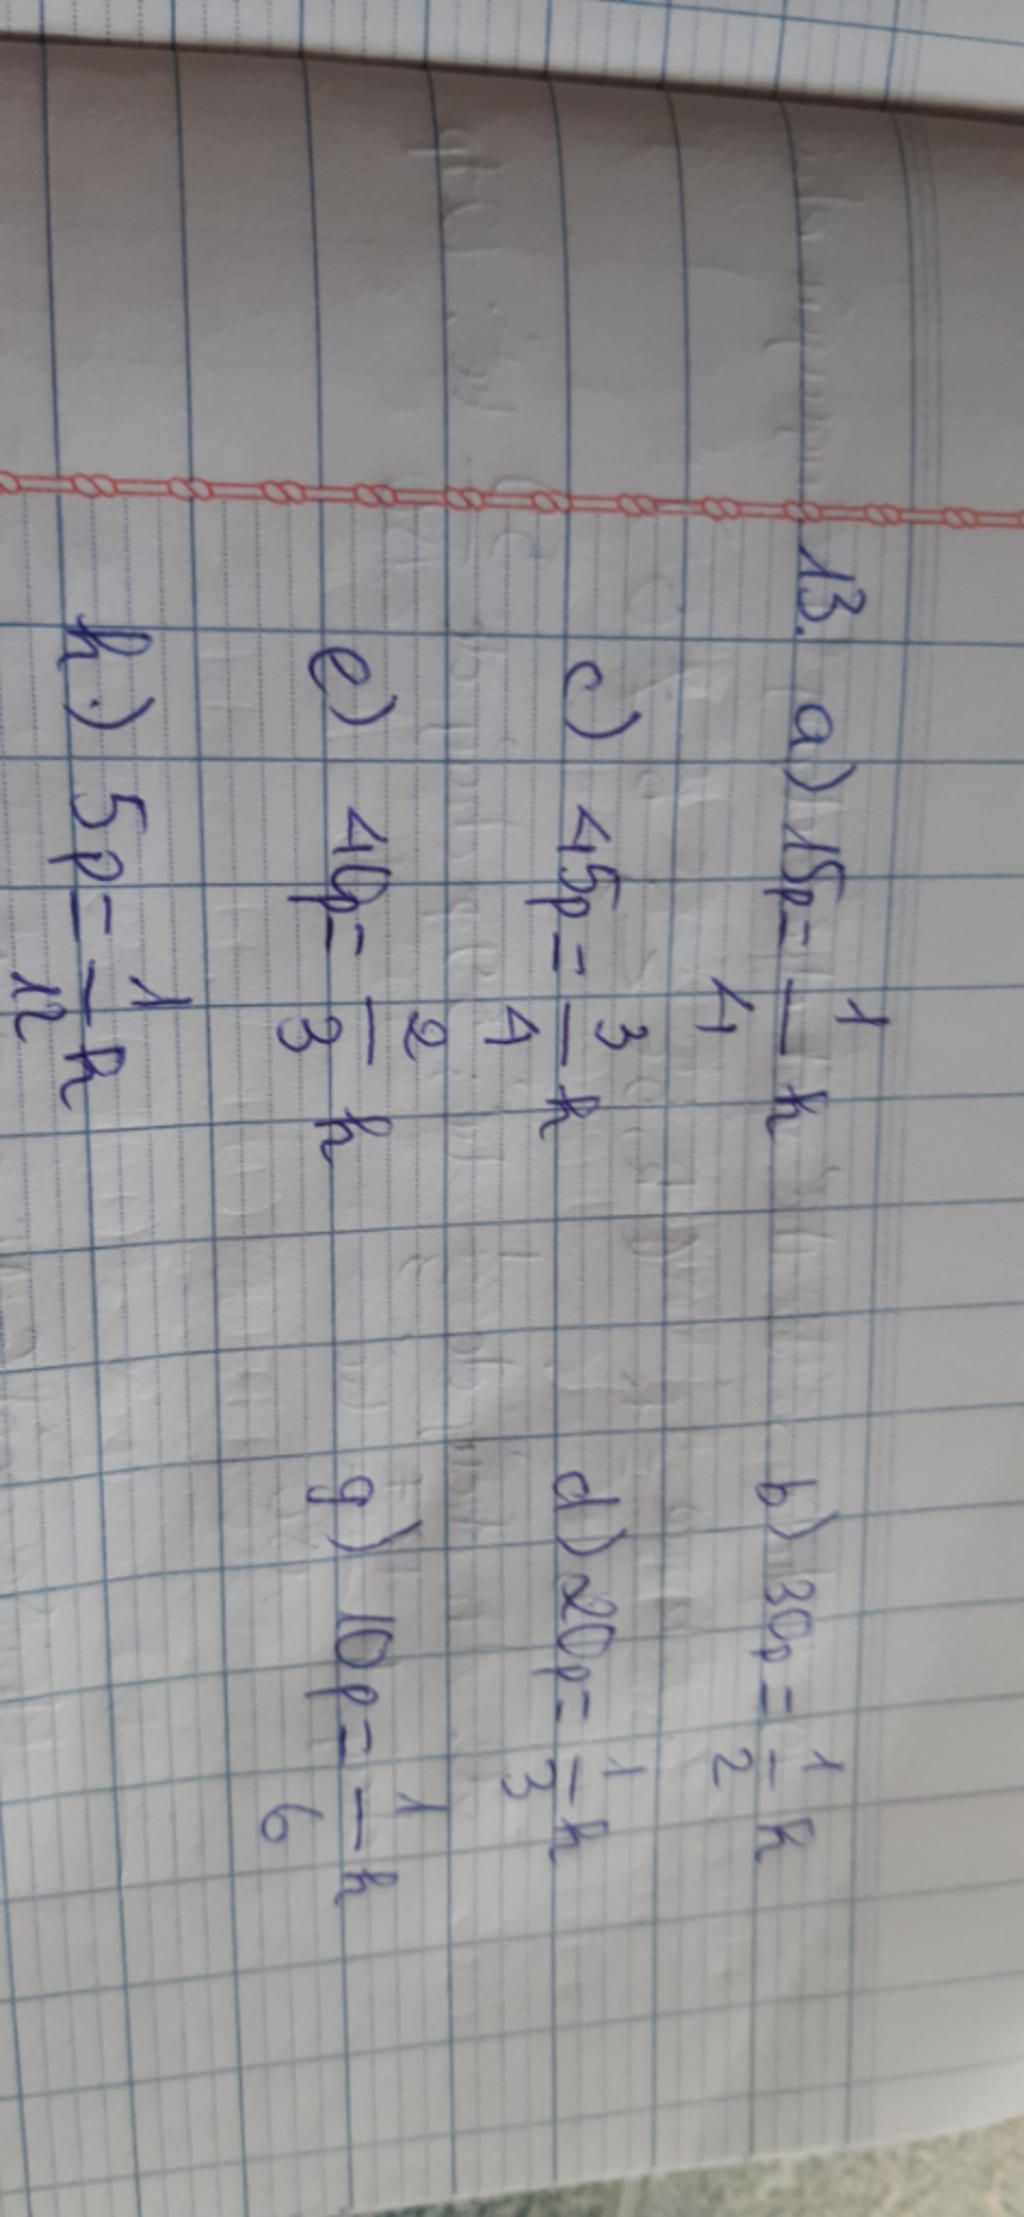 13. a) 15p = 1/4 h b) 30p = 1/2 h
c) 45p = 3/4 h d) 20p = 1/3 h
e) 40p = 2/3 h g) 10p = 1/6 h
h.) 5p = 1/12 h